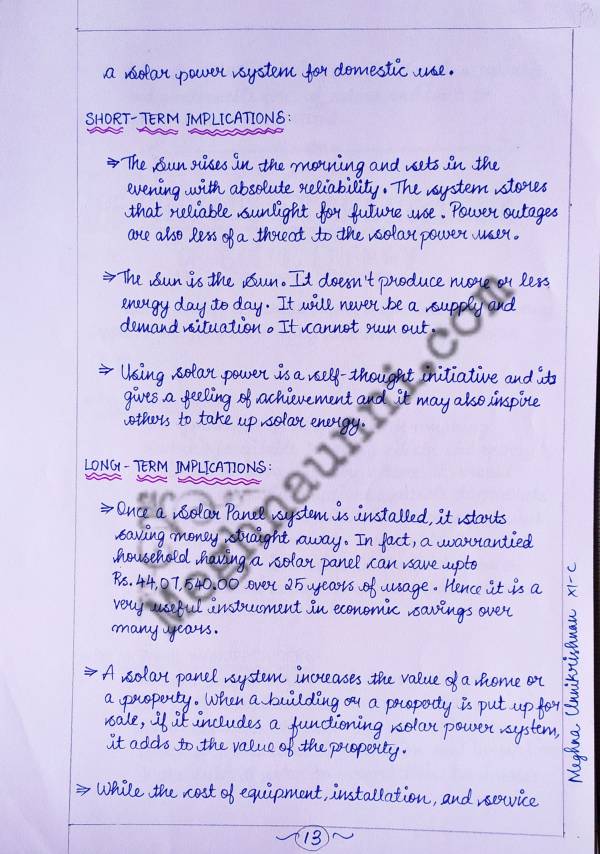 a solar power system for domestic use.
SHORT-TERM IMPLICATIONS:
⇒ The Sun rises in the morning and sets in the
evening with absolute reliability. The system stores
that reliable sunlight for future use. Power outages
are also less of a threat to the solar power user.
⇒ The Sun is the Sun. It doesn't produce more or less
energy day to day. It will never be a supply and
demand situation. It cannot run out.
⇒ Using solar power is a self-thought initiative and its
gives a feeling of achievement and it may also inspire
others to take up solar energy.
LONG-TERM IMPLICATIONS:
⇒ Once a Solar Panel system is installed, it starts
saving money straight away. In fact, a warrantied
household having a solar panel can save upto
Rs. 44,07,540.00 over 25 years of usage. Hence it is a
very useful instrument in economic savings over
many years.
⇒ A solar panel system increases the value of a home or
a property. When a building or a property is put up for
sale, if it includes a functioning solar power system,
it adds to the value of the property.
⇒ While the cost of equipment, installation, and service
13
Meghna Unnikrishnan XI-C
Meghnaunni.com